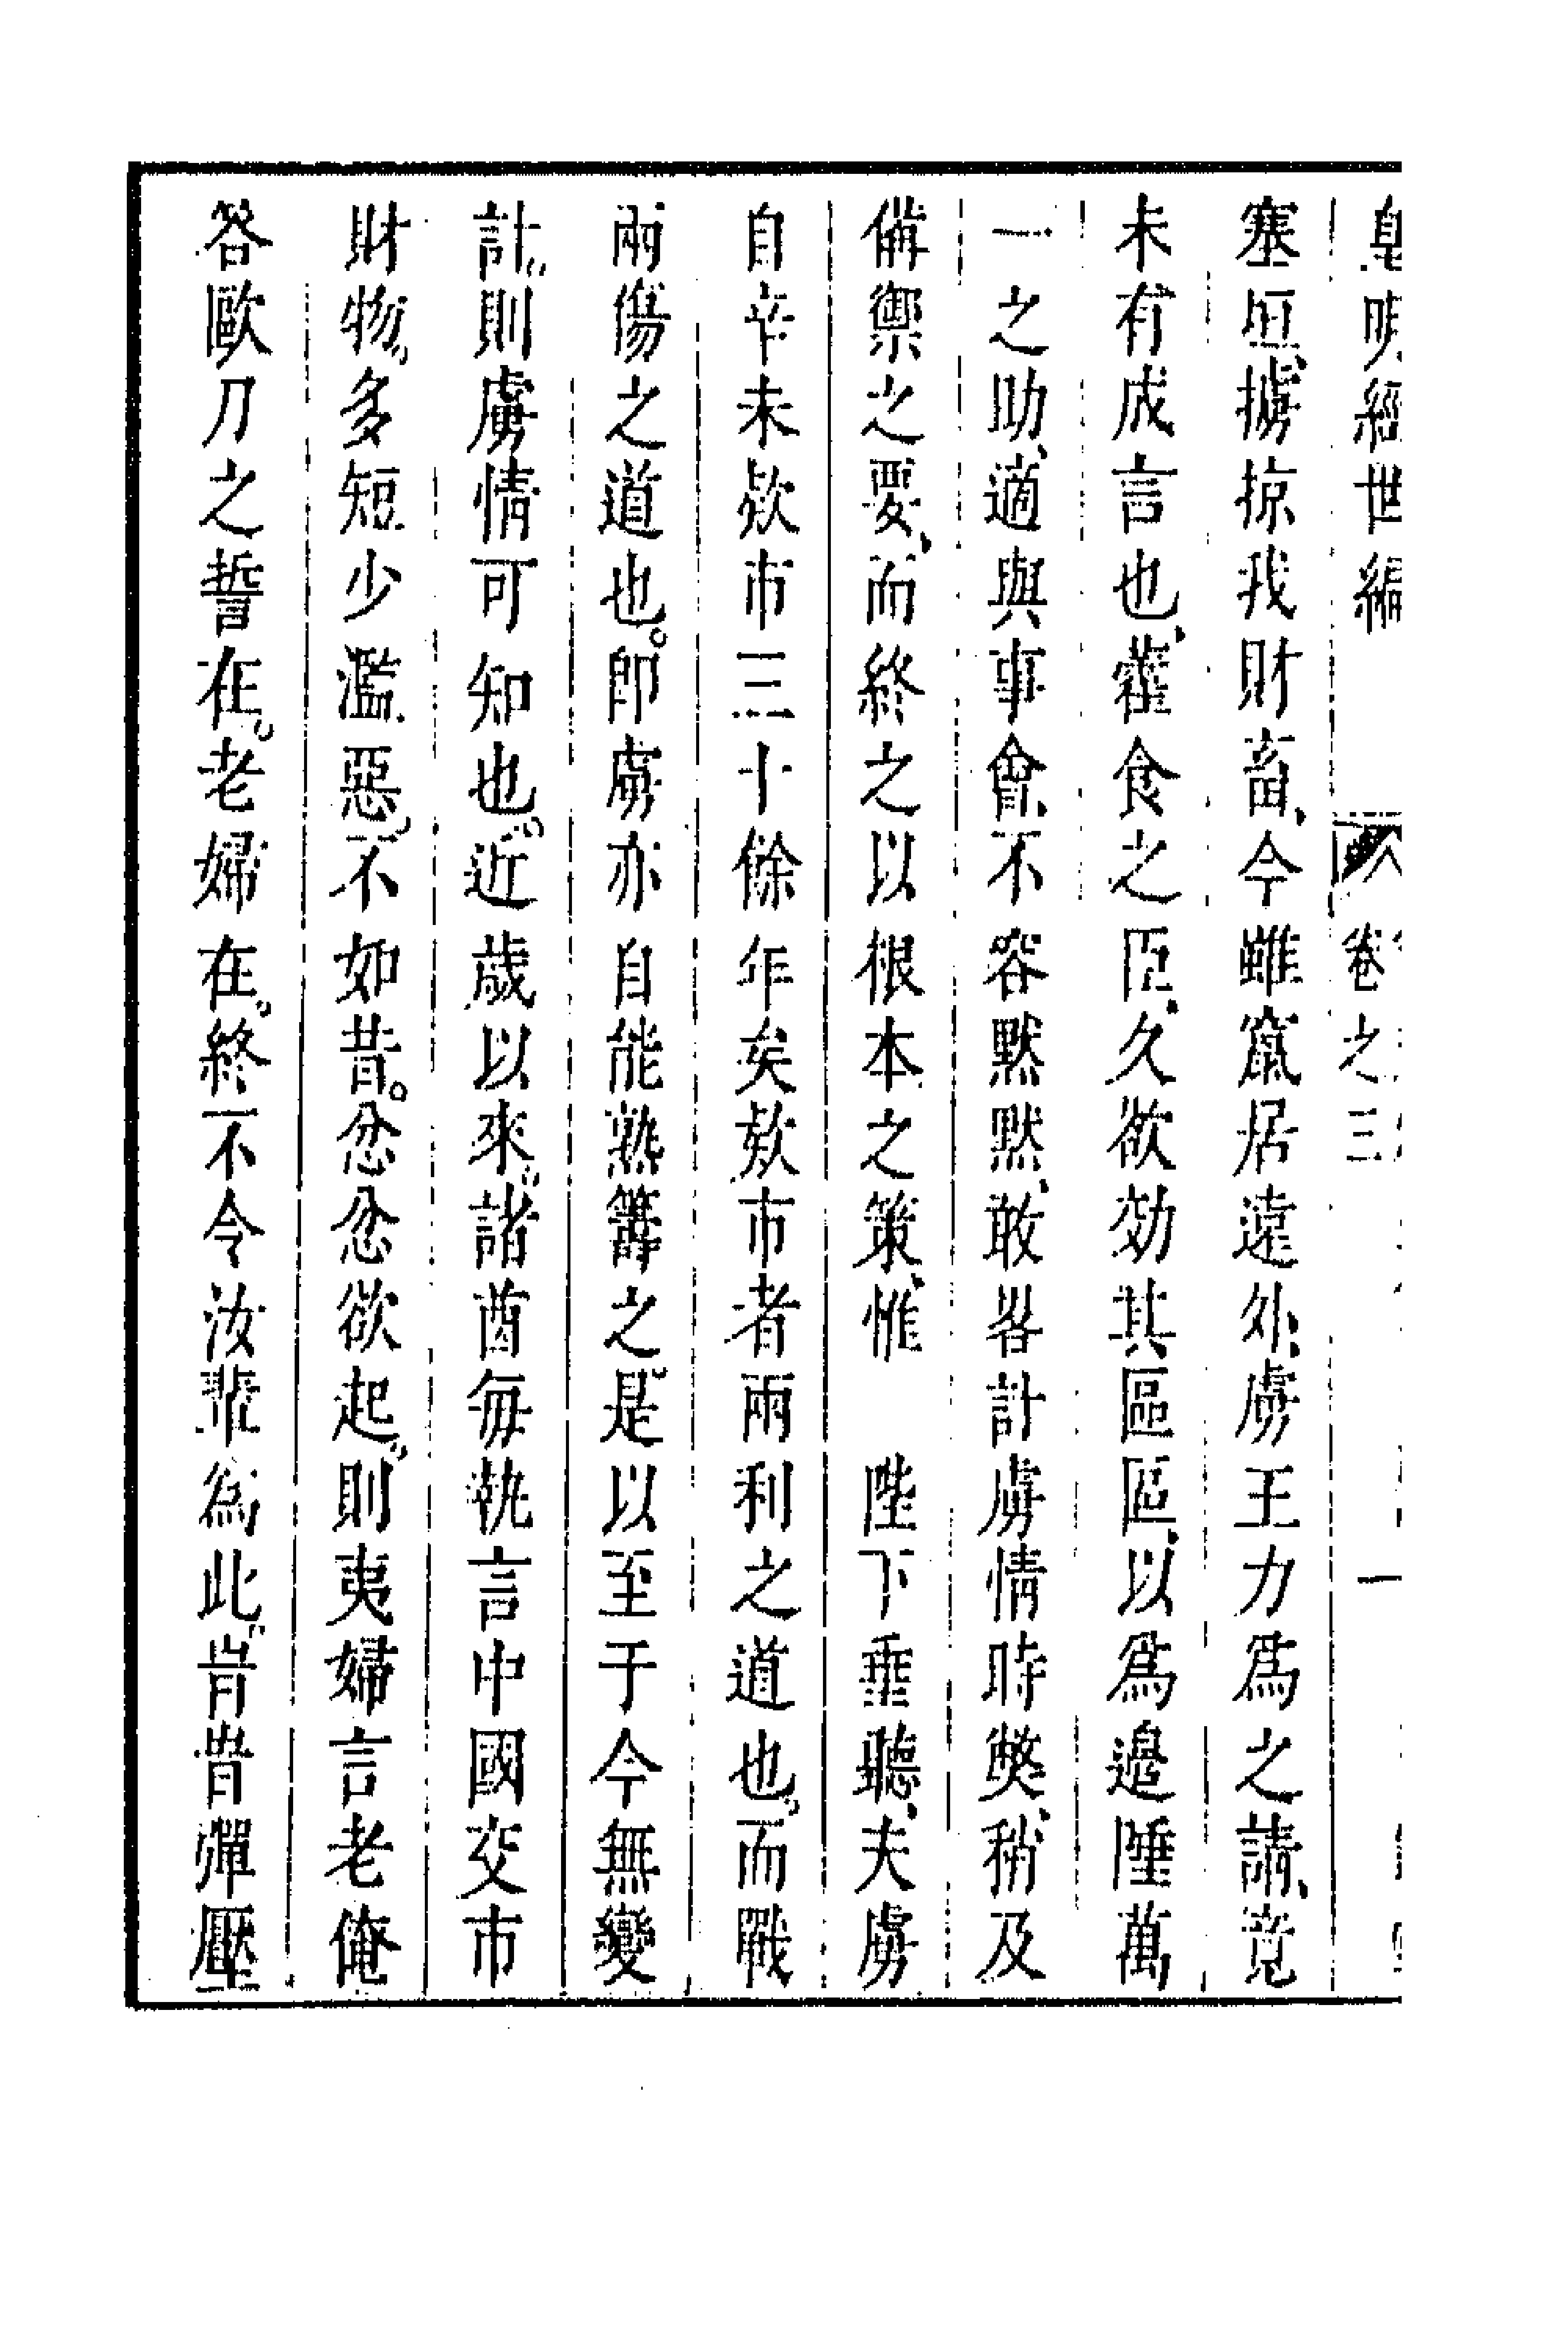 皇明經世編 卷之三 一
塞垣、擄掠我財畜、今雖竄居遠外、虜王力為之請、竟
未有成言也、藿食之臣、久欲効其區區、以為邊陲萬
一之助、適與事會、不容黙黙、敢畧計虜情時獘、稍及
備禦之要、而終之以根本之策、惟　陛下垂聽、夫虜
自辛未欵市三十餘年矣欵市者兩利之道也。而戰
兩傷之道也。即虜亦自能熟籌之。是以至于今無變
計。則虜情可知也。近歲以來。諸酋每執言中國交市
財物。多短少濫惡。不如昔。忿忿欲起。則夷婦言老俺
答歐刀之誓在。老婦在。終不令汝輩為此。肯昔彈壓